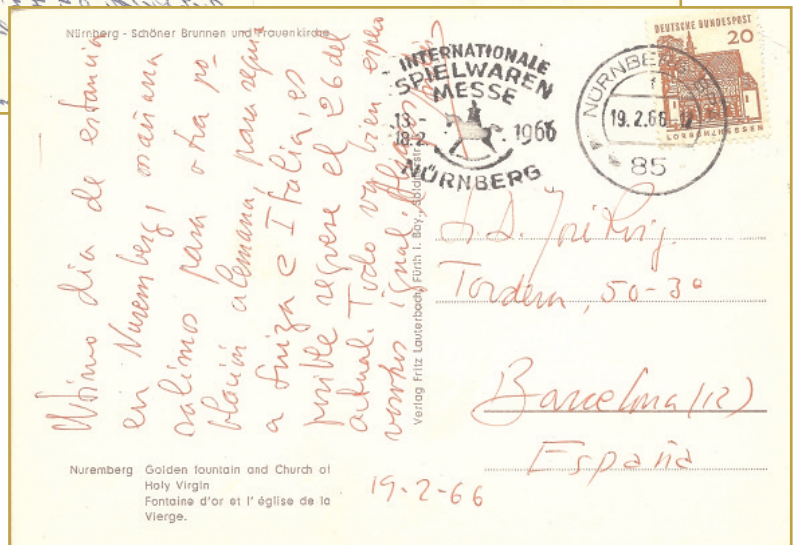 Nürnberg - Schöner Brunnen und Frauenkirche
INTERNATIONALE
SPIELWAREN
MESSE
13.-
18.2. 1966
NÜRNBERG
DEUTSCHE BUNDESPOST
20
NÜRNBERG
19.2.66
85
dia de estancia
en Nuremberg, mañana
salimos para otra po-
blación alemana, para seguir
a Suiza e Italia, es
posible regrese el 26 del
actual. Todo va bien espero
vosotros igual.
Verlag Fritz Lauterbach, Fürth i. Bay.,
Tordera, 50-3º
Barcelona (12)
España
19-2-66
Nuremberg Golden fountain and Church of
Holy Virgin
Fontaine d'or et l'église de la
Vierge.